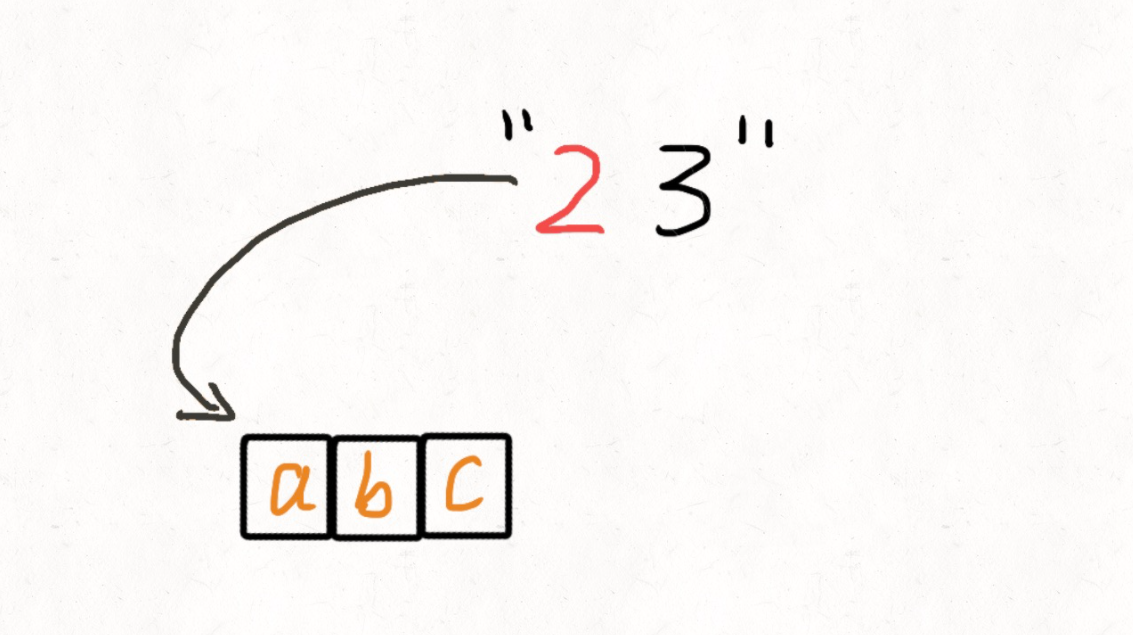 "2 3"
a b c